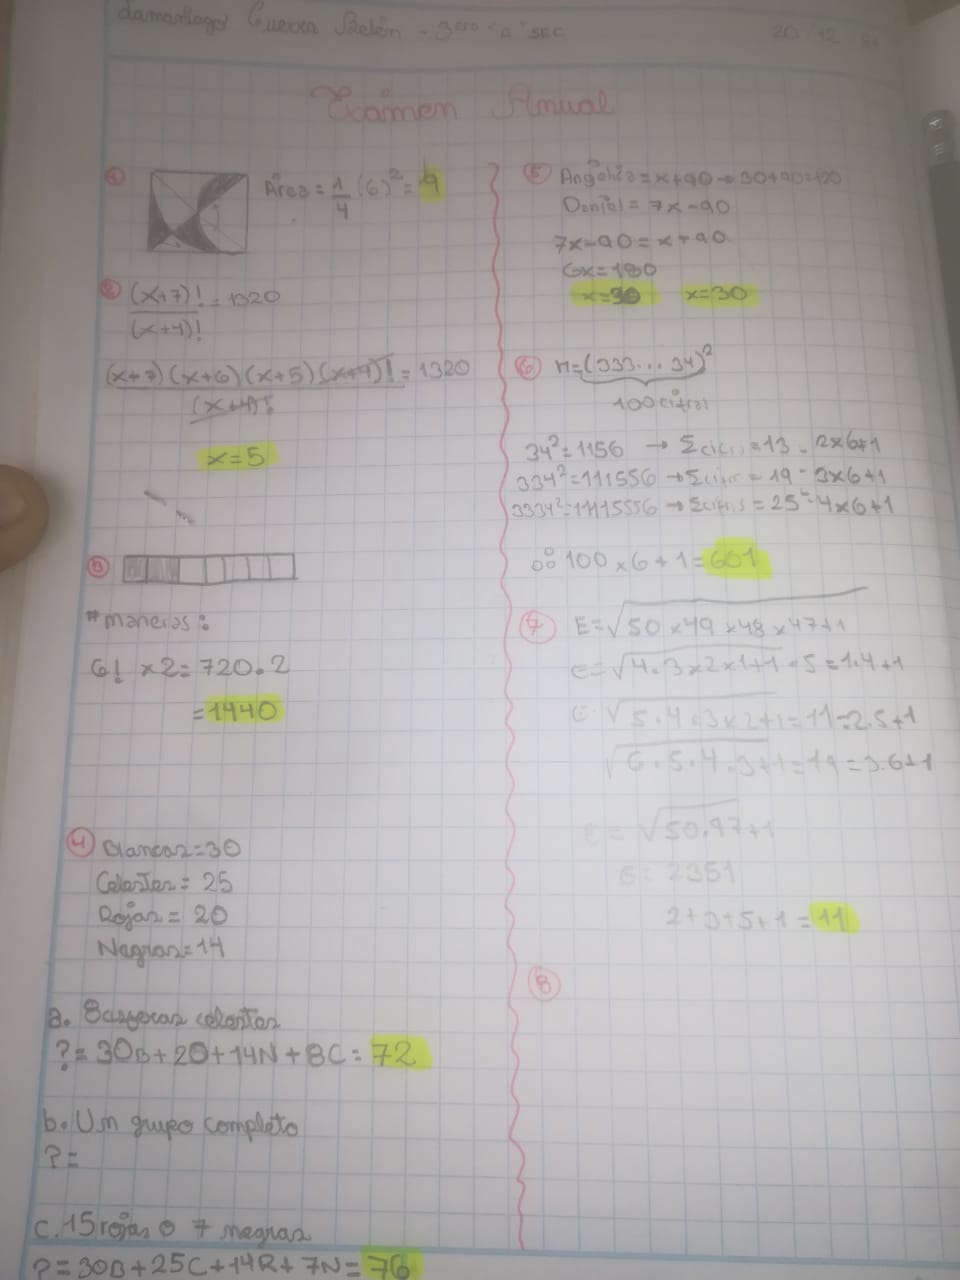 Cuerva Belén - 3ero "A" SEC
20 12
Exámen Anual
1 Área = 1/4 (6)² = 9
2 (x+7)! / (x+4)! = 1320
(x+7)(x+6)(x+5)(x+4)! / (x+4)! = 1320
x=5
3
# maneras:
6! x2= 720.2
=1440
4 Blancas=30
Celestes= 25
Rojas= 20
Negras=14
a. 8 esferas celestes
?= 30B+20+14N+8C= 72
b. Un grupo completo
?=
c. 15 rojas o 7 negras
?= 30B+25C+14R+7N= 76
5 Angélica= x+90 → 30+90=120
Daniel= 7x-90
7x-90=x+90
6x=180
x=30 x=30
6 M=(333...34)²
100 cifras
34²=1156 → Σcifras=13 - 2x6+1
334²=111556 → Σcifras = 19 - 3x6+1
3334²=11115556 → Σcifras = 25 = 4x6+1
100 x6+1= 601
7 E=√50 x49 x48 x47+1
E=√4.3x2x1+1 = 5 = 1.4+1
E √5.4.3x2+1 = 11 = 2.5+1
√6.5.4.3+1 = 19 = 3.6+1
E = √50.47+1
E= 2351
2+3+5+1 = 11
8